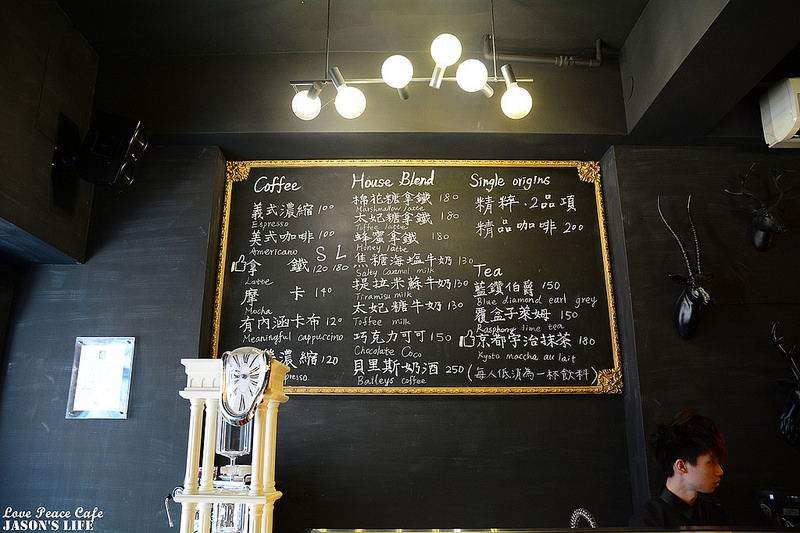 Coffee
義式濃縮 100
Espresso
美式咖啡 100
Americano
S L
拿 鐵 120 180
Latte
摩 卡 140
Mocha
有內涵卡布 120
Meaningful cappuccino
濃縮 120
House Blend
棉花糖拿鐵 180
Marshmallow latte
太妃糖拿鐵 180
Toffee latte
蜂蜜拿鐵 180
Honey latte
焦糖海塩牛奶 130
Salty Caramel milk
提拉米蘇牛奶 130
Tiramisu milk
太妃糖牛奶 130
Toffee milk
巧克力可可 150
Chocolate Coco
貝里斯奶酒 250
Baileys coffee
Single origins
精粹.2品項
精品咖啡 200
Tea
藍鑽伯爵 150
Blue diamond earl grey
覆盆子萊姆 150
Raspberry lime tea
京都宇治抹茶 180
Kyoto maccha au lait
(每人低消為一杯飲料)
Love Peace Cafe
JASON'S LIFE